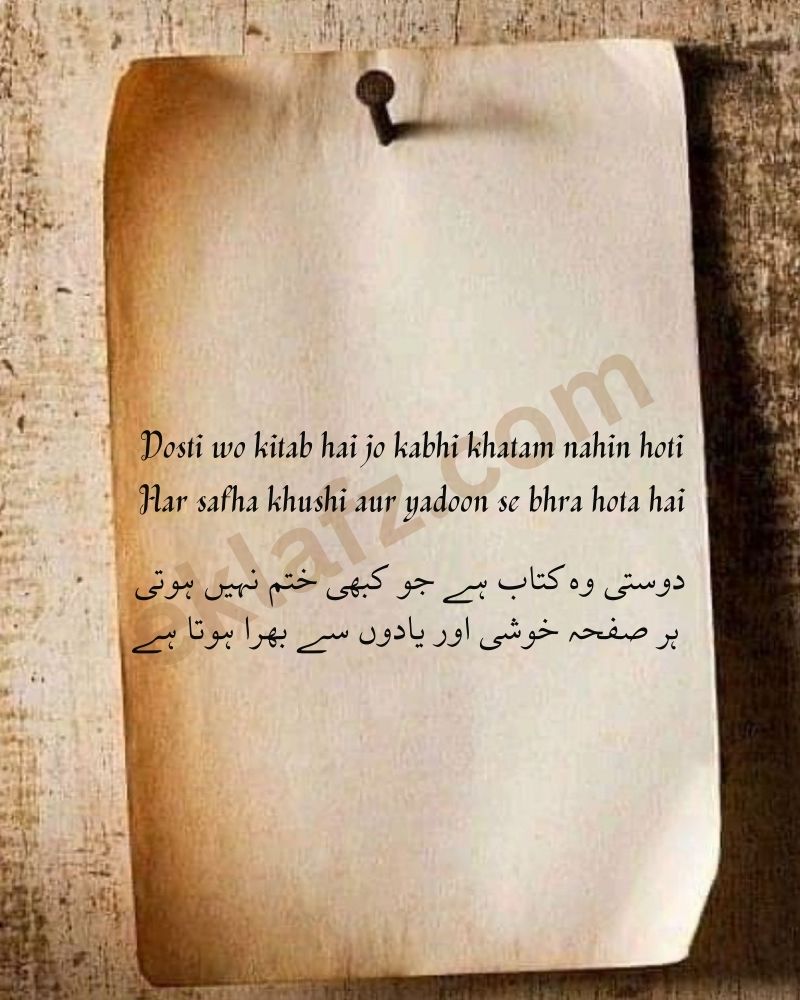 Dosti wo kitab hai jo kabhi khatam nahin hoti
Har safha khushi aur yadoon se bhra hota hai
دوستی وہ کتاب ہے جو کبھی ختم نہیں ہوتی
ہر صفحہ خوشی اور یادوں سے بھرا ہوتا ہے
sklafz.com